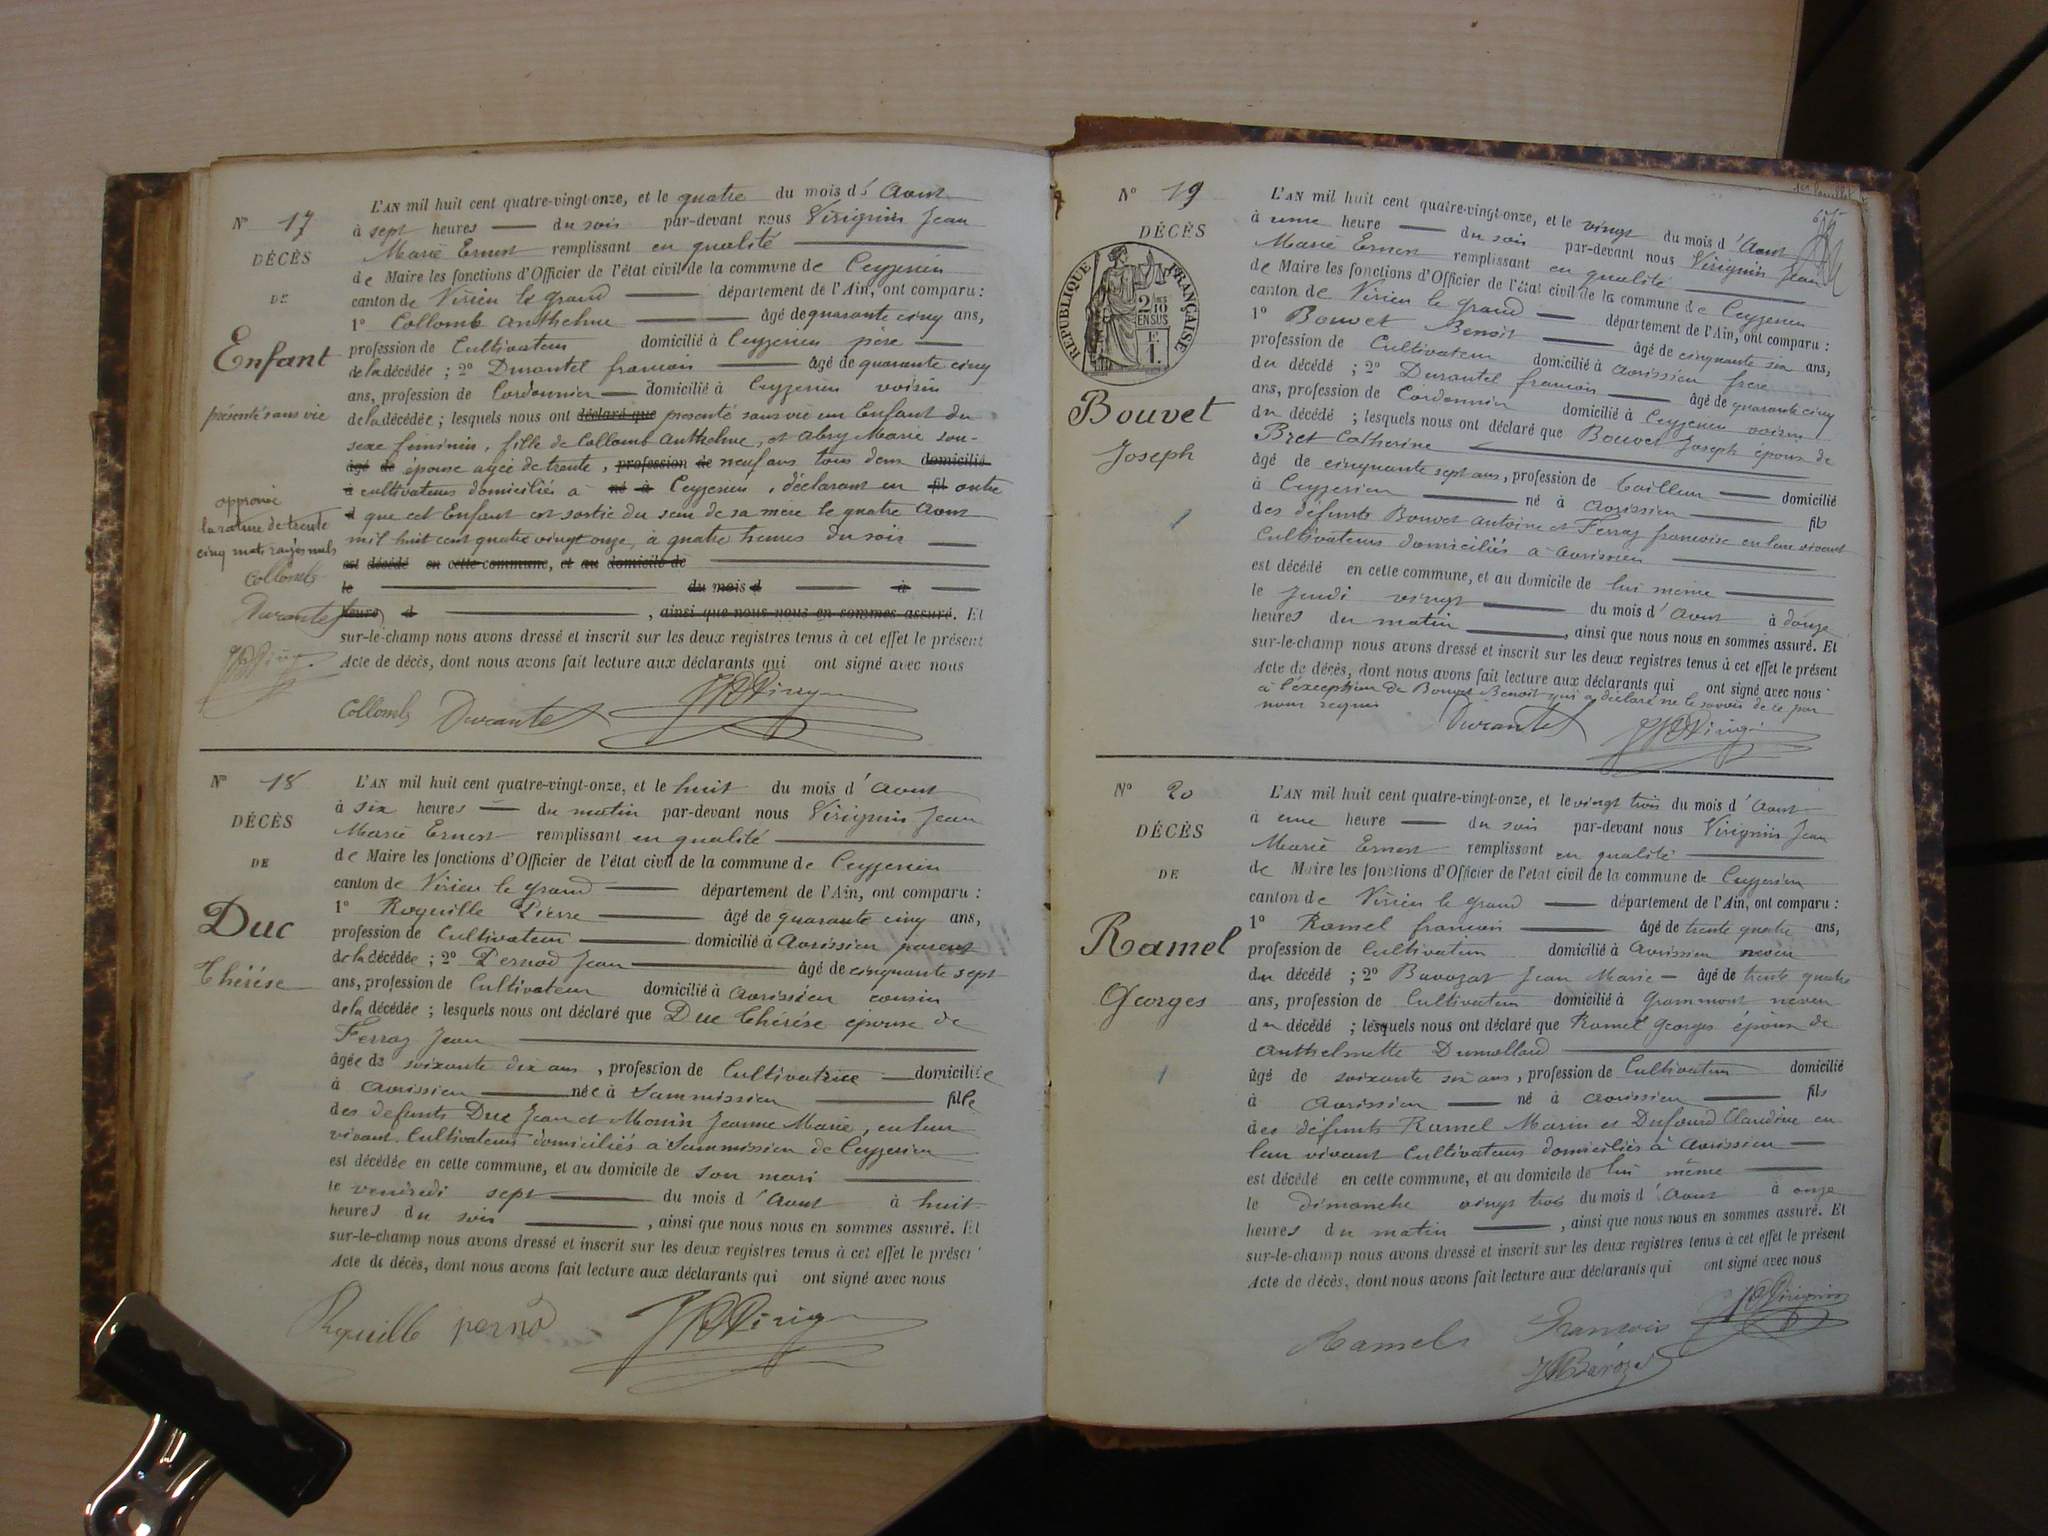 N° 17
DÉCÈS
DE
Enfant
présenté sans vie
approuvé
la rature de trente
cinq mots rayés nuls
Collomb
Durantel
L'AN mil huit cent quatre-vingt-onze, et le quatre du mois d' Aout
à sept heures — du soir par-devant nous Virignin Jean
Marie Ernest remplissant en qualité
de Maire les fonctions d'Officier de l'état civil de la commune de Ceyzerieu
canton de Virieu le grand département de l'Ain, ont comparu :
1° Collomb Anthelme âgé de quarante cinq ans,
profession de Cultivateur domicilié à Ceyzerieu père
de la décédée ; 2° Durantel francois âgé de quarante cinq
ans, profession de Cordonnier domicilié à Ceyzerieu voisin
de la décédée ; lesquels nous ont déclaré que présenté sans vie un Enfant du
sexe féminin, fille de Collomb Anthelme, et Abry Marie son-
âgé de épouse agée de trente, profession de neuf ans tous deux domicilié
à cultivateurs domiciliés à né à Ceyzerieu, déclarant en fil outre
d que cet Enfant est sortie du sein de sa mere le quatre Aout
mil huit cent quatre vingt onze, à quatre heures du soir
est décédé en cette commune, et au domicile de
le du mois d à
heures d , ainsi que nous nous en sommes assuré. Et
sur-le-champ nous avons dressé et inscrit sur les deux registres tenus à cet effet le présent
Acte de décès, dont nous avons fait lecture aux déclarants qui ont signé avec nous
Collomb Durantel
N° 18
DÉCÈS
DE
Duc
Thérése
L'AN mil huit cent quatre-vingt-onze, et le huit du mois d' Aout
à six heures — du matin par-devant nous Virignin Jean
Marie Ernest remplissant en qualité
de Maire les fonctions d'Officier de l'état civil de la commune de Ceyzerieu
canton de Virieu le grand département de l'Ain, ont comparu :
1° Roquille Pierre âgé de quarante cinq ans,
profession de Cultivateur domicilié à Avrissieu parent
de la décédée ; 2° Pernod Jean âgé de cinquante sept
ans, profession de Cultivateur domicilié à Avrissieu cousin
de la décédée ; lesquels nous ont déclaré que Duc Thérése épouse de
Ferraz Jean
âgée de soixante dix ans, profession de Cultivatrice domiciliée
à Avrissieu née à Sammissieu fille
des defunts Duc Jean et Monin Jeanne Marie, en leur
vivant Cultivateurs domiciliés à Sammissieu de Ceyzerieu
est décédée en cette commune, et au domicile de son mari
le vendredi sept du mois d' Aout à huit
heures du soir , ainsi que nous nous en sommes assuré. Et
sur-le-champ nous avons dressé et inscrit sur les deux registres tenus à cet effet le présent
Acte de décès, dont nous avons fait lecture aux déclarants qui ont signé avec nous
Roquille pernod
1er feuillet
N° 19
DÉCÈS
RÉPUBLIQUE FRANÇAISE
2/10 EN SUS
F. 1.
Bouvet
Joseph
L'AN mil huit cent quatre-vingt-onze, et le vingt du mois d' Aout
à une heure — du soir par-devant nous Virignin Jean
Marie Ernest remplissant en qualité
de Maire les fonctions d'Officier de l'état civil de la commune de Ceyzerieu
canton de Virieu le grand département de l'Ain, ont comparu :
1° Bouvet Benoit âgé de cinquante six ans,
profession de Cultivateur domicilié à Avrissieu frere
du décédé ; 2° Durantel francois âgé de quarante cinq
ans, profession de Cordonnier domicilié à Ceyzerieu voisin
du décédé ; lesquels nous ont déclaré que Bouvet Joseph époux de
Bret Catherine
âgé de cinquante sept ans, profession de tailleur domicilié
à Ceyzerieu né à Avrissieu fils
des défunts Bouvet Antoine et Ferraz francoise en leur vivant
Cultivateurs domiciliés à Avrissieu
est décédé en cette commune, et au domicile de lui même
le Jeudi vingt du mois d' Aout à douze
heures du matin , ainsi que nous nous en sommes assuré. Et
sur-le-champ nous avons dressé et inscrit sur les deux registres tenus à cet effet le présent
Acte de décès, dont nous avons fait lecture aux déclarants qui ont signé avec nous
à l'éxception de Bouvet Benoit qui a déclaré ne le savoir de ce par
nous requis
Durantel
N° 20
DÉCÈS
DE
Ramel
Georges
L'AN mil huit cent quatre-vingt-onze, et le vingt trois du mois d' Aout
à une heure — du soir par-devant nous Virignin Jean
Marie Ernest remplissant en qualité
de Maire les fonctions d'Officier de l'état civil de la commune de Ceyzerieu
canton de Virieu le grand département de l'Ain, ont comparu :
1° Ramel francois âgé de trente quatre ans,
profession de Cultivateur domicilié à Avrissieu neveu
du décédé ; 2° Bavozat Jean Marie âgé de trente quatre
ans, profession de Cultivateur domicilié à Grammont neveu
du décédé ; lesquels nous ont déclaré que Ramel Georges époux de
Anthelmette Dumollard
âgé de soixante six ans, profession de Cultivateur domicilié
à Avrissieu né à Avrissieu fils
des défunts Ramel Marin et Dufourd Claudine en
leur vivant Cultivateurs domiciliés à Avrissieu
est décédé en cette commune, et au domicile de lui même
le dimanche vingt trois du mois d' Aout à onze
heures du matin , ainsi que nous nous en sommes assuré. Et
sur-le-champ nous avons dressé et inscrit sur les deux registres tenus à cet effet le présent
Acte de décès, dont nous avons fait lecture aux déclarants qui ont signé avec nous
Ramel francois